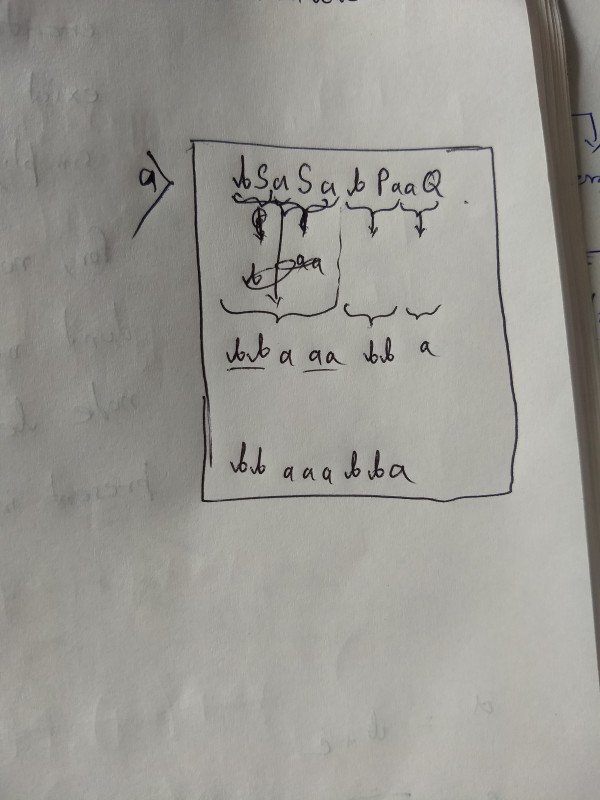 a) bSaSa bPaaQ
b aa
bb a aa bb a
bb aaa bba